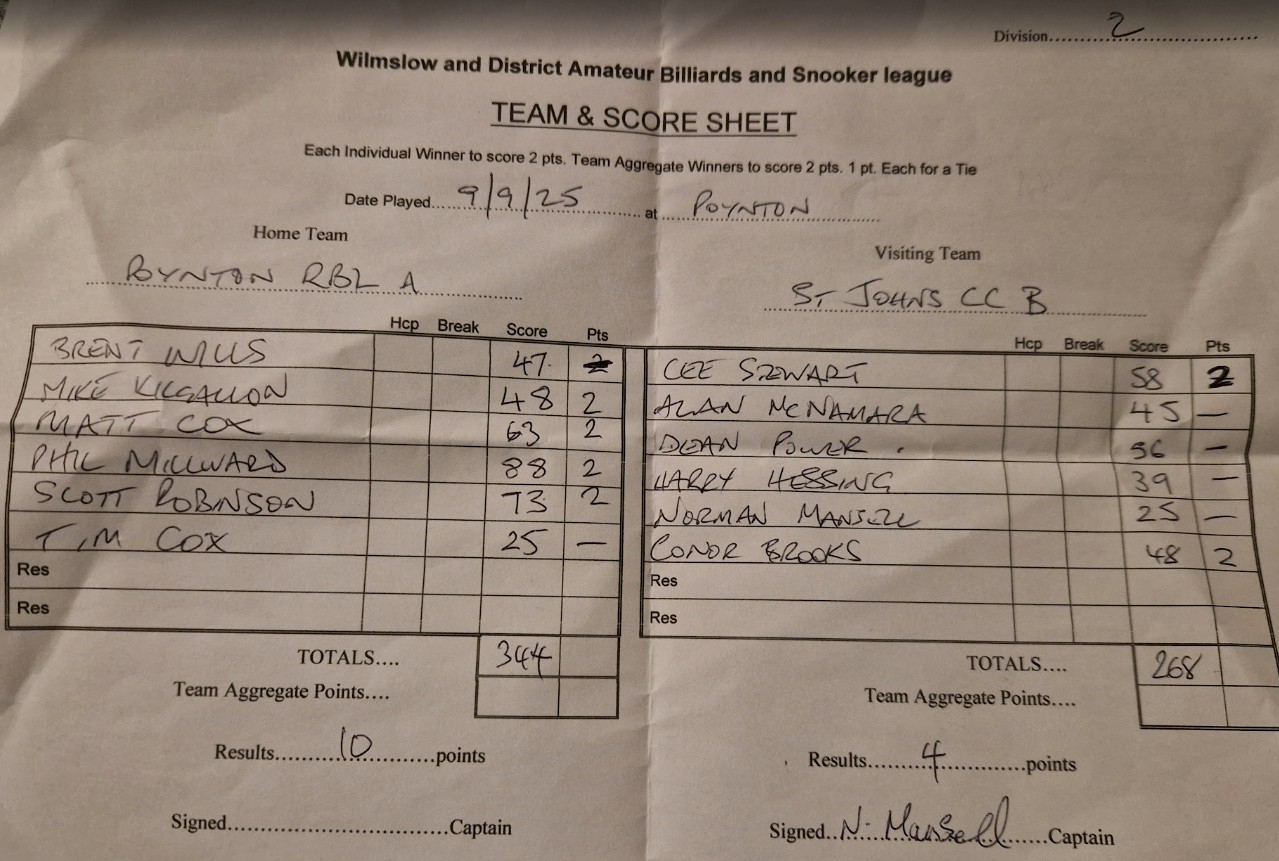 Division....2....
Wilmslow and District Amateur Billiards and Snooker league
TEAM & SCORE SHEET
Each Individual Winner to score 2 pts. Team Aggregate Winners to score 2 pts. 1 pt. Each for a Tie
Date Played....9/9/25.... at ....POYNTON....
Home Team
Visiting Team
POYNTON RBL A
ST JOHNS CC B
Hcp Break Score Pts
Hcp Break Score Pts
BRENT WILLS 47
CEE STEWART 58 2
MIKE KILGALLON 48 2
ALAN MCNAMARA 45 —
MATT COX 63 2
DEAN POWER . 56 —
PHIL MILLWARD 88 2
HARRY HESSING 39 —
SCOTT ROBINSON 73 2
NORMAN MANSELL 25 —
TIM COX 25 —
CONOR BROOKS 48 2
Res
Res
Res
Res
TOTALS.... 344
TOTALS.... 268
Team Aggregate Points....
Team Aggregate Points....
Results....10....points
Results....4....points
Signed........Captain
Signed..N. Mansell....Captain